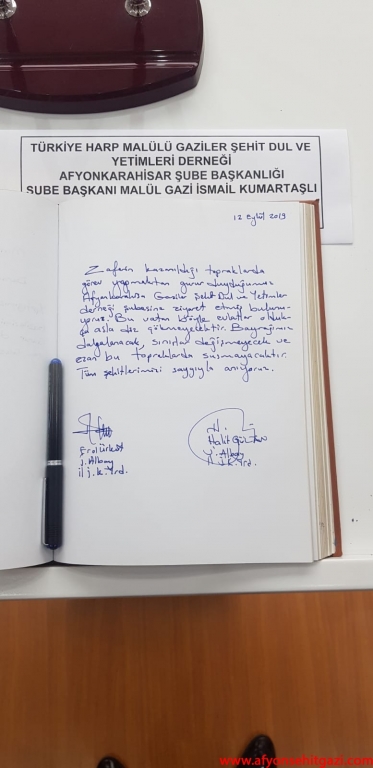 TÜRKİYE HARP MALÜLÜ GAZİLER ŞEHİT DUL VE
YETİMLERİ DERNEĞİ
AFYONKARAHİSAR ŞUBE BAŞKANLIĞI
ŞUBE BAŞKANI MALÜL GAZİ İSMAİL KUMARTAŞLI
12 Eylül 2019
Zaferin kazanıldığı topraklarda
görev yapmaktan gurur duyduğumuz
Afyonkarahisar Gaziler Şehit Dul ve Yetimler
derneği şubesine ziyaret etmiş bulunu-
yoruz. Bu vatan böyle evlatlar olduk-
ça asla diz çökmeyecektir. Bayrağımız
dalgalanacak, sınırlar değişmeyecek ve
ezan bu topraklarda susmayacaktır.
Tüm şehitlerimizi saygıyla anıyoruz.
J. Albay
il j.k.Yrd.
Halit
J. Albay
il j.k.Yrd.
www.afyonsehitgazi.com